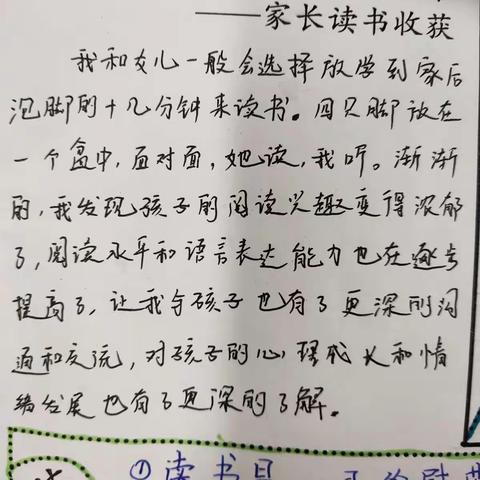 ——家长读书收获
我和女儿一般会选择放学到家后
泡脚的十几分钟来读书。四只脚放在
一个盆中，面对面，她读，我听。渐渐
的，我发现孩子的阅读兴趣变得浓郁
了，阅读水平和语言表达能力也在逐步
提高了，让我与孩子也有了更深的沟
通和交流，对孩子的心理成长和情
绪发展也有了更深的了解。
①读书